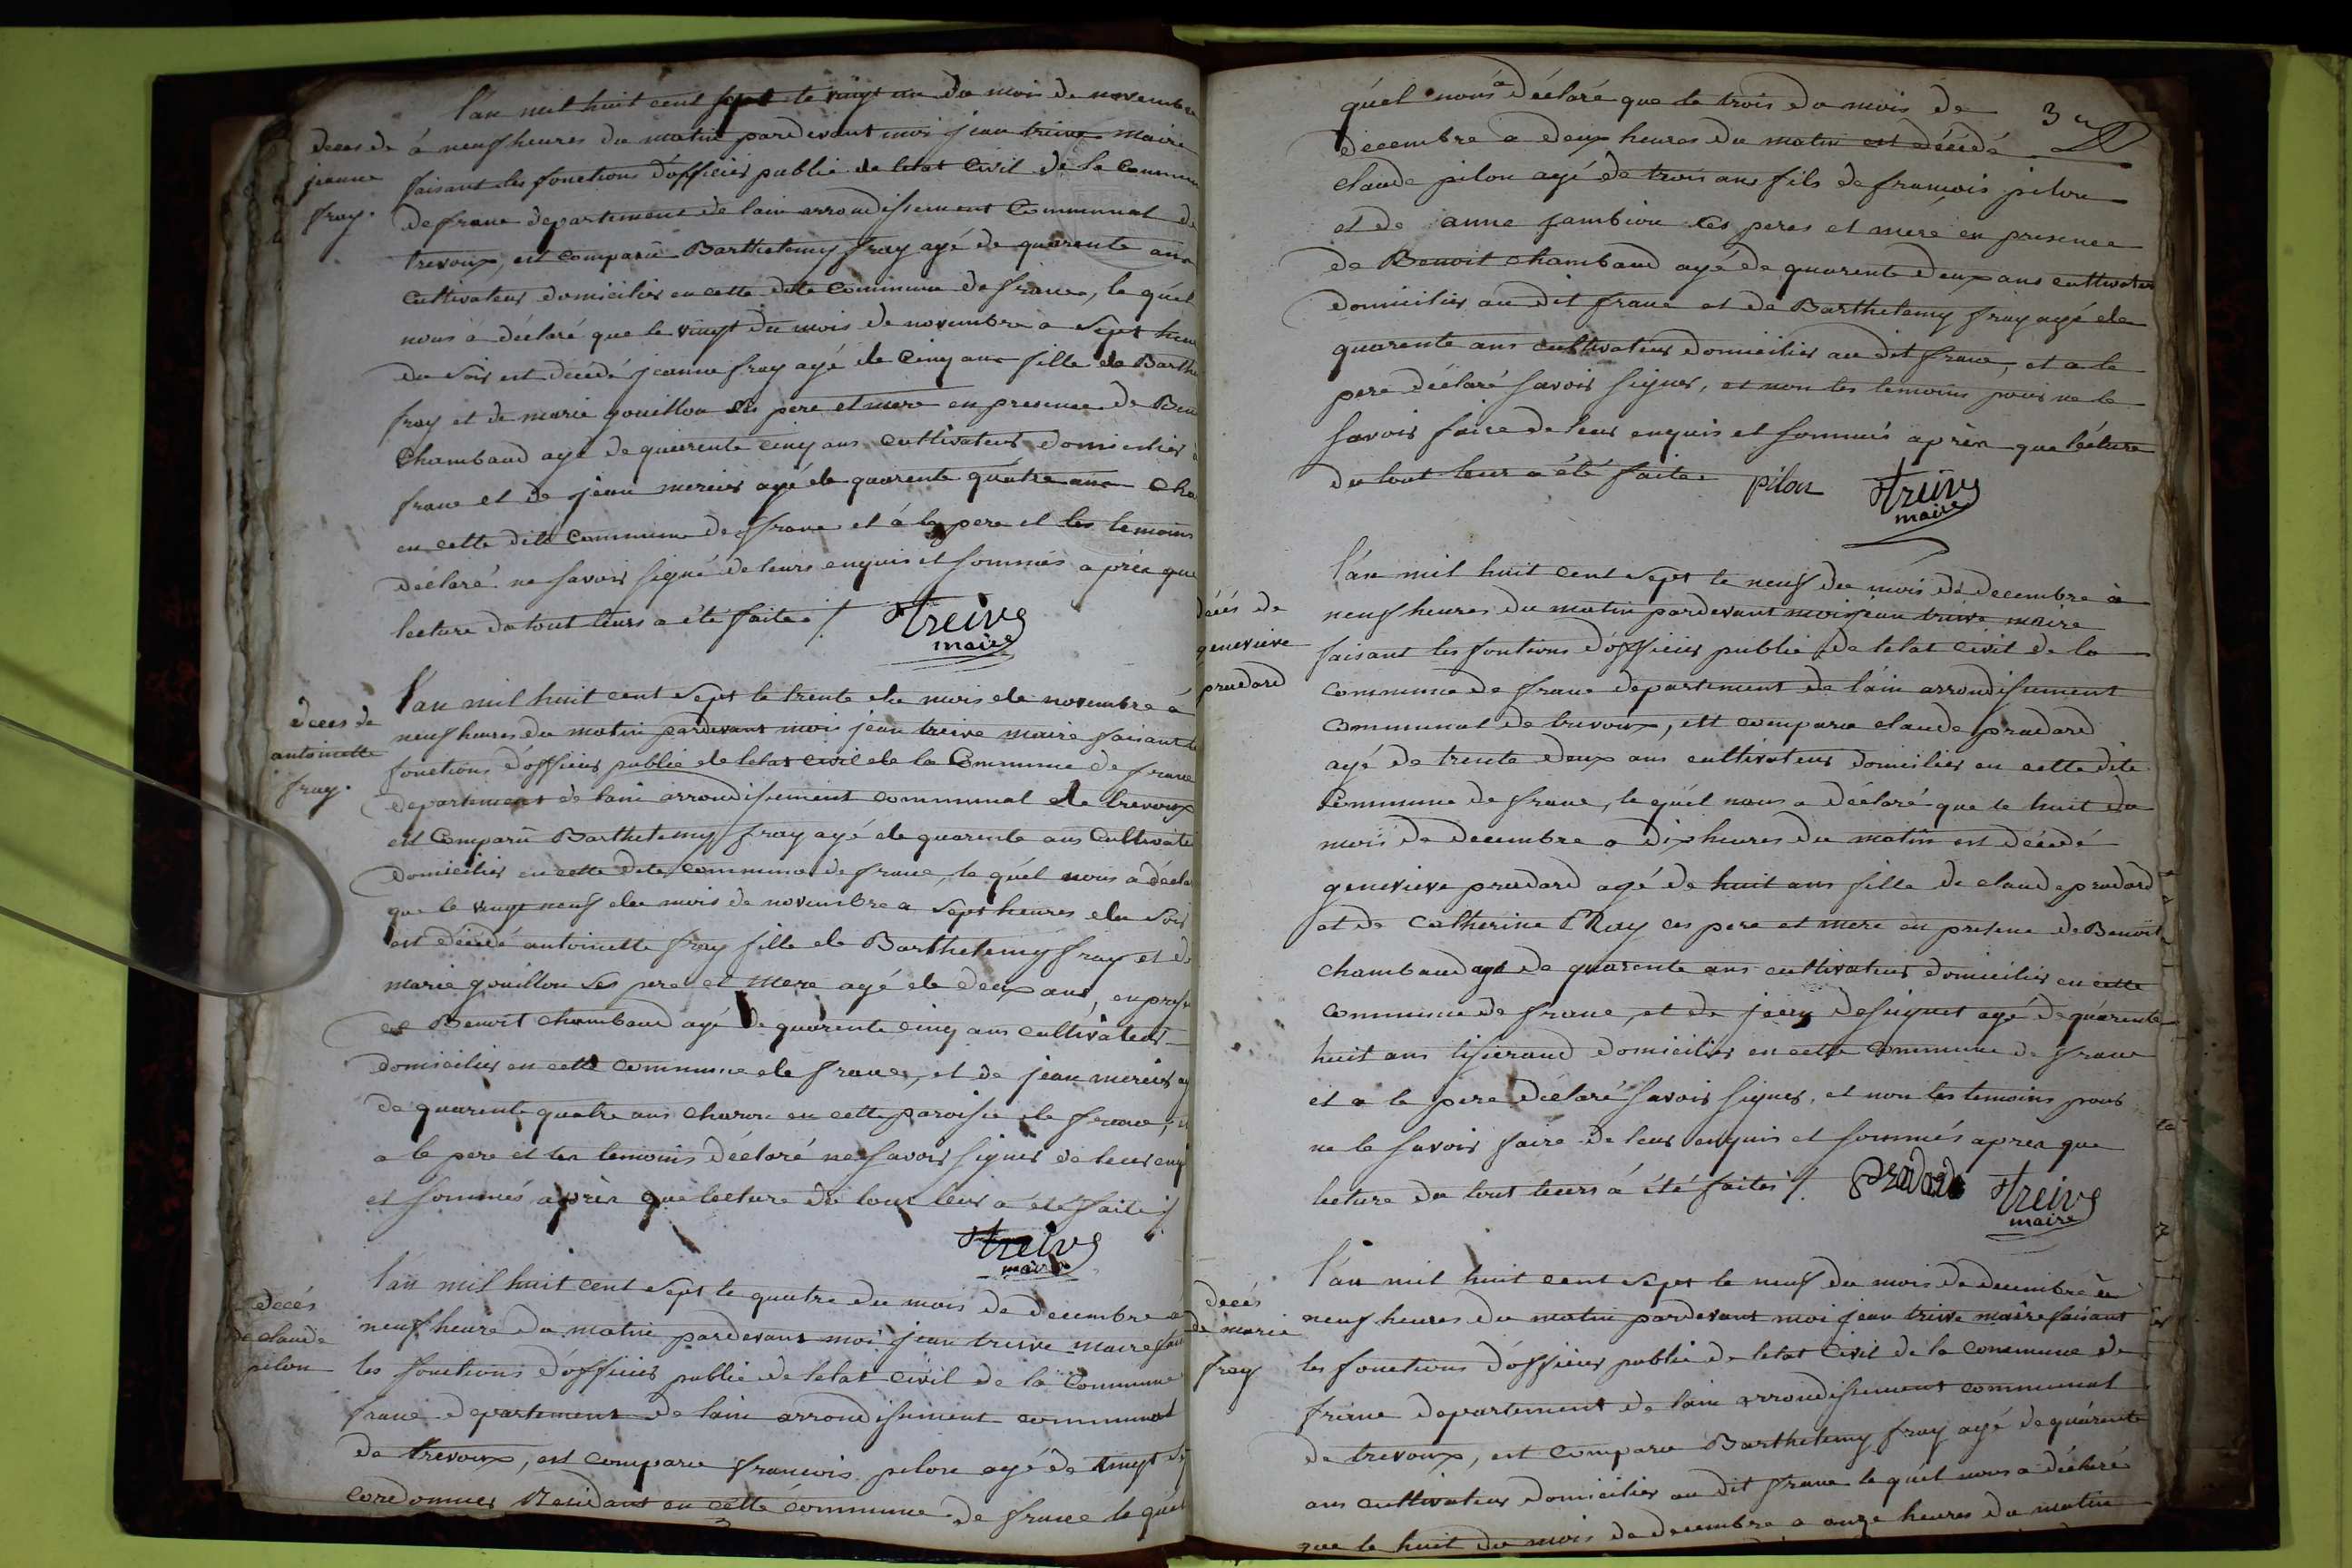 l'an mil huit cent sept le vingt un du mois de novembre
deces de
jeanne
fray.
à neuf heures du matin pardevant moi jean treive maire
faisant les fonctions d'officier public de letat Civil de la Commun
de frane departement de lain arrondissement Communal de
trevoux, est Comparü Barthelemy fray agé de quarente ans
Cultivateur domicilier en cette dite Commune de frane, le quél
nous à déclaré que le vingt du mois de novembre a sept heu
du soir est décédé jeanne fray agé de Cinq ans fille de Barthe
fray et de marie gouillon ses pere et mere en presence de Ben
Chambaud agé de quarente cinq ans cultivateur domicilier à
frane et de jean mercier agé de quarente quatre ans Cha
en cette dite Commune de frane et à le pere et les temoins
déclaré ne savoir signé de leurs enquis et sommés aprèx que
lecture du tout leurs a été faite ./. treive
maire
deces de
antoinette
fray.
l'an mil huit cent sept le trente du mois de novembre à
neuf heures du matin pardevant moi jean treive maire faisant le
fonctions d'officier public de letat civil de la Commune de frane
departement de lain arrondissement communal de trevoux
est Comparü Barthelemy fray agé de quarente ans Cultivate
domicilier en cette dite commune de frane, le quél nous a décla
que le vingt neuf du mois de novembre a sept heures du soir
est décédé antoinette fray fille de Barthelemy fray et de
marie gouillon ses pere et mere agé de deux ans, en prese
de Benoit chambaud agé de quarente cinq ans cultivateur
domicilier en cette commune de frane, et de jean mercier ag
de quarente quatre ans charon en cette paroisse de frane, et
a le pere et les temoins déclaré ne savoir signer de leur enq
et sommés aprèx que lecture du tout leur a été faite ./.
treive
maire
decés
de claude
pilon
l'an mil huit cent sept le quatre du mois de decembre a
neuf heure du matin pardevant moi jean treive maire fai
les fonctions d'officier public de letat civil de la Commune
frane departement de lain arrondissement communal
de trevoux, est comparu francois pilon agé de vingt
cordonnier Residant en cette commune de frane le quél
3e
quél nous a déclaré que le trois du mois de
decembre a deux heures du matin est décédé
claude pilon agé de trois ans fils de francois pilon
et de anne jambion ses peres et mere en presence
de Benoit chambaud agé de quarente deux ans cultivateur
domicilier au dit frane et de Barthelemy fray agé de
quarente ans cultivateur domicilier au dit frane, et a le
pere déclaré savoir signer, et non les temoins pour ne le
savoir faire de leur enquis et sommés aprèx que lécture
du tout leur a été faite pilon treive
maire
décés de
genevieve
pradard
l'an mil huit cent sept le neuf du mois de decembre à
neuf heures du matin pardevant moi jean treive maire
faisant les fontions d'officier public de letat civil de la
commune de frane departement de l'ain arrondissement
communal de trevoux, est comparu claude pradard
agé de trente deux ans cultivateur domicilier en cette dite
Commune de frane, le quél nous a déclaré que le huit du
mois de decembre a dix heures du matin est décédé
genevieve pradard agé de huit ans fille de claude pradard
et de Catherine Ray ces pere et mere en presence de Benoit
chambaud agé de quarente ans cultivateur domicilier en cette
commune de frane, et de jean desuignet agé de quarente
huit ans tisserand domicilier en cette commune de frane
et a le pere déclaré savoir signer, et non les temoins pour
ne le savoir faire de leur enquis et sommés aprèx que
lecture du tout leurs à été faites ./. Pradard treive
maire
decés
de marie
fray
l'an mil huit cent sept le neuf du mois de decembre à
neuf heures du matin pardevant moi jean treive maire faisant
les fonctions d'officier public de letat Civil de la commune de
frane departement de lain arrondissement communal
de trevoux, est comparu Barthelemy fray agé de quarente
ans cultivateur domicilier au dit frane le quél nous a déclaré
que le huit du mois de decembre a onze heures du matin